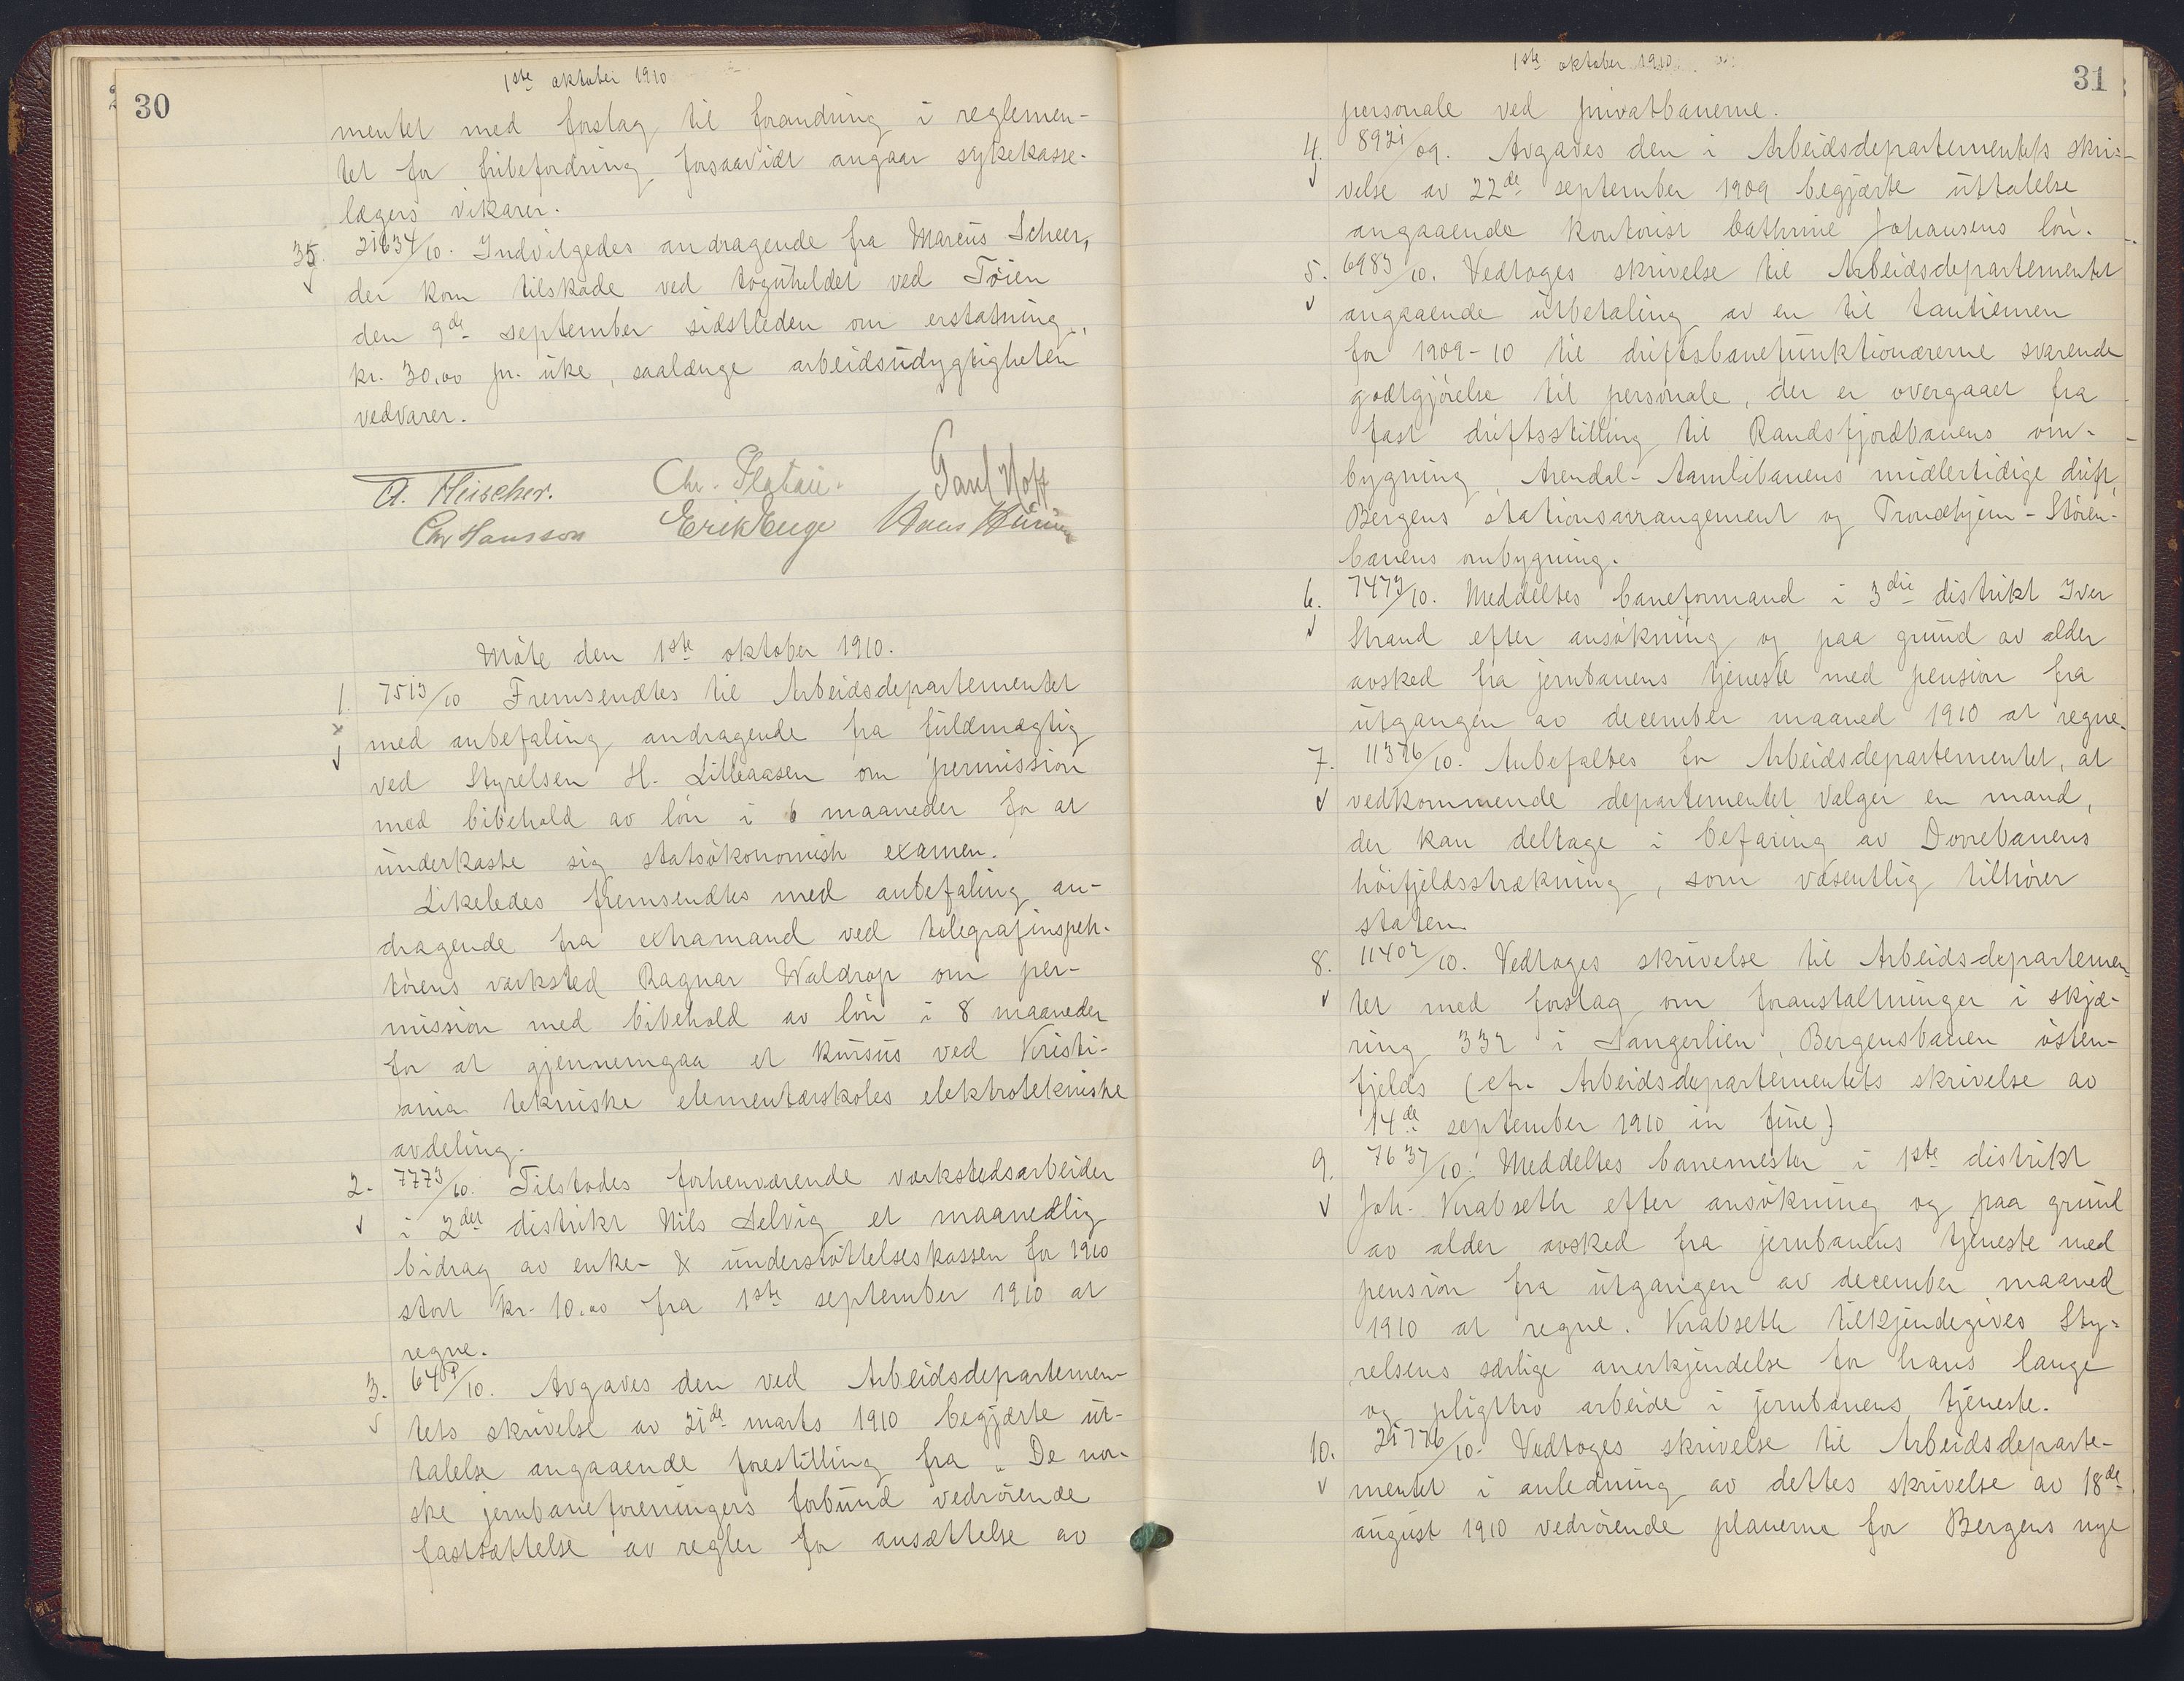 1ste oktober 1910
30
mentet med forslag til forandring i reglemen-
tet for fribefordring forsaavidt angaar sykekasse-
lægers vikarer.
35. 21634/10. Indvilgedes andragende fra Marcus Scheer,
der kom tilskade ved toguheldet ved Tøien
den 9de september sidstleden om erstatning,
kr. 30,00 pr. uke, saalænge arbeidsudygtigheten
vedvarer.
Chr. Platou. Paul Hoff
A. Fleischer.
Chr Hansson
Møte den 1ste oktober 1910.
1. 7513/10 Fremsendtes til Arbeidsdepartementet
med anbefaling andragende fra fuldmægtig
ved Styrelsen H. Lilleaasen om permission
med bibehold av løn i 6 maaneder for at
underkaste sig statsøkonomisk examen.
Likeledes fremsendtes med anbefaling an-
dragende fra extramand ved telegrafinspek-
tørens verksted Ragnar Waldrop om per-
mission med bibehold av løn i 8 maaneder
for at gjennemgaa et kursus ved Kristi-
ania tekniske elementærskoles elektrotekniske
avdeling.
2. 7773/10. Tilstodes forhenværende verkstedsarbeider
i 2det distrikt Nils Selvig et maanedlig
bidrag av enke- & understøttelseskassen for 1910
stort kr. 10.00 fra 1ste september 1910 at
regne.
3. /10. Avgaves den ved Arbeidsdepartemen-
tets skrivelse av 21de marts 1910 begjærte ut-
talelse angaaende forestilling fra „De nor-
ske jernbaneforeningers forbund vedrørende
fastsættelse av regler for ansættelse av
1ste oktober 1910.
31
personale ved privatbanerne.
4. 8921/09. Avgaves den i Arbeidsdepartementets skri-
velse av 22de september 1909 begjærte uttalelse
angaaende kontorist Cathrine Johansens løn.
5. 6983/10. Vedtoges skrivelse til Arbeidsdepartementet
angaaende utbetaling av en til tantiemen
for 1909-10 til driftsbanefunktionærerne svarende
godtgjørelse til personale, der er overgaaet fra
fast driftsstilling til Randsfjordbanens om-
bygning, Arendal-Aamlibanens midlertidige drift,
Bergens stationsarrangement og Trondhjem-Støren-
banens ombygning.
6. 7473/10. Meddeltes baneformand i 3die distrikt Iver
Strand efter ansøkning og paa grund av alder
avsked fra jernbanens tjeneste med pension fra
utgangen av december maaned 1910 at regne.
7. 11376/10. Anbefaltes for Arbeidsdepartementet, at
vedkommende departementet vælger en mand,
der kan deltage i befaring av Dovrebanens
høifjeldsstrækning, som væsentlig tilhører
staten.
8. 11402/10. Vedtoges skrivelse til Arbeidsdepartemen-
tet med forslag om foranstaltninger i skjæ-
ring 332 i Slangerlien, Bergensbanen østen-
fjelds (cfr. Arbeidsdepartementets skrivelse av
14de september 1910 in fine)
9. 7637/10. Meddeltes banemester i 1ste distrikt
Joh. Krabseth efter ansøkning og paa grund
av alder avsked fra jernbanens tjeneste med
pension fra utgangen av december maaned
1910 at regne. Krabseth tilkjendegives Sty-
relsens særlige anerkjendelse for hans lange
og pligttro arbeide i jernbanens tjeneste.
10. 21776/10. Vedtoges skrivelse til Arbeidsdeparte-
mentet i anledning av dettes skrivelse av 18de
august 1910 vedrørende planerne for Bergens nye